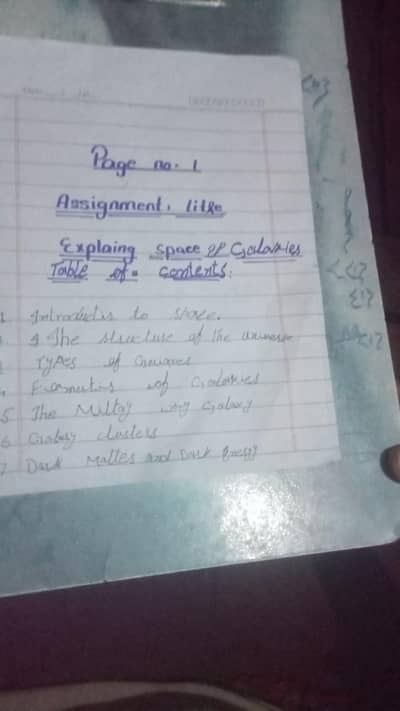 Page no. 1
Assignment. litle
Explaing space of Galaxies
Table of contents:
Introductis to space.
2 The structure of the universe
3 Types of Galaxies
of Galaxies
5 The Milky way Galaxy
6 Galaxy clusters
7 Dark Matles and Dark Energy